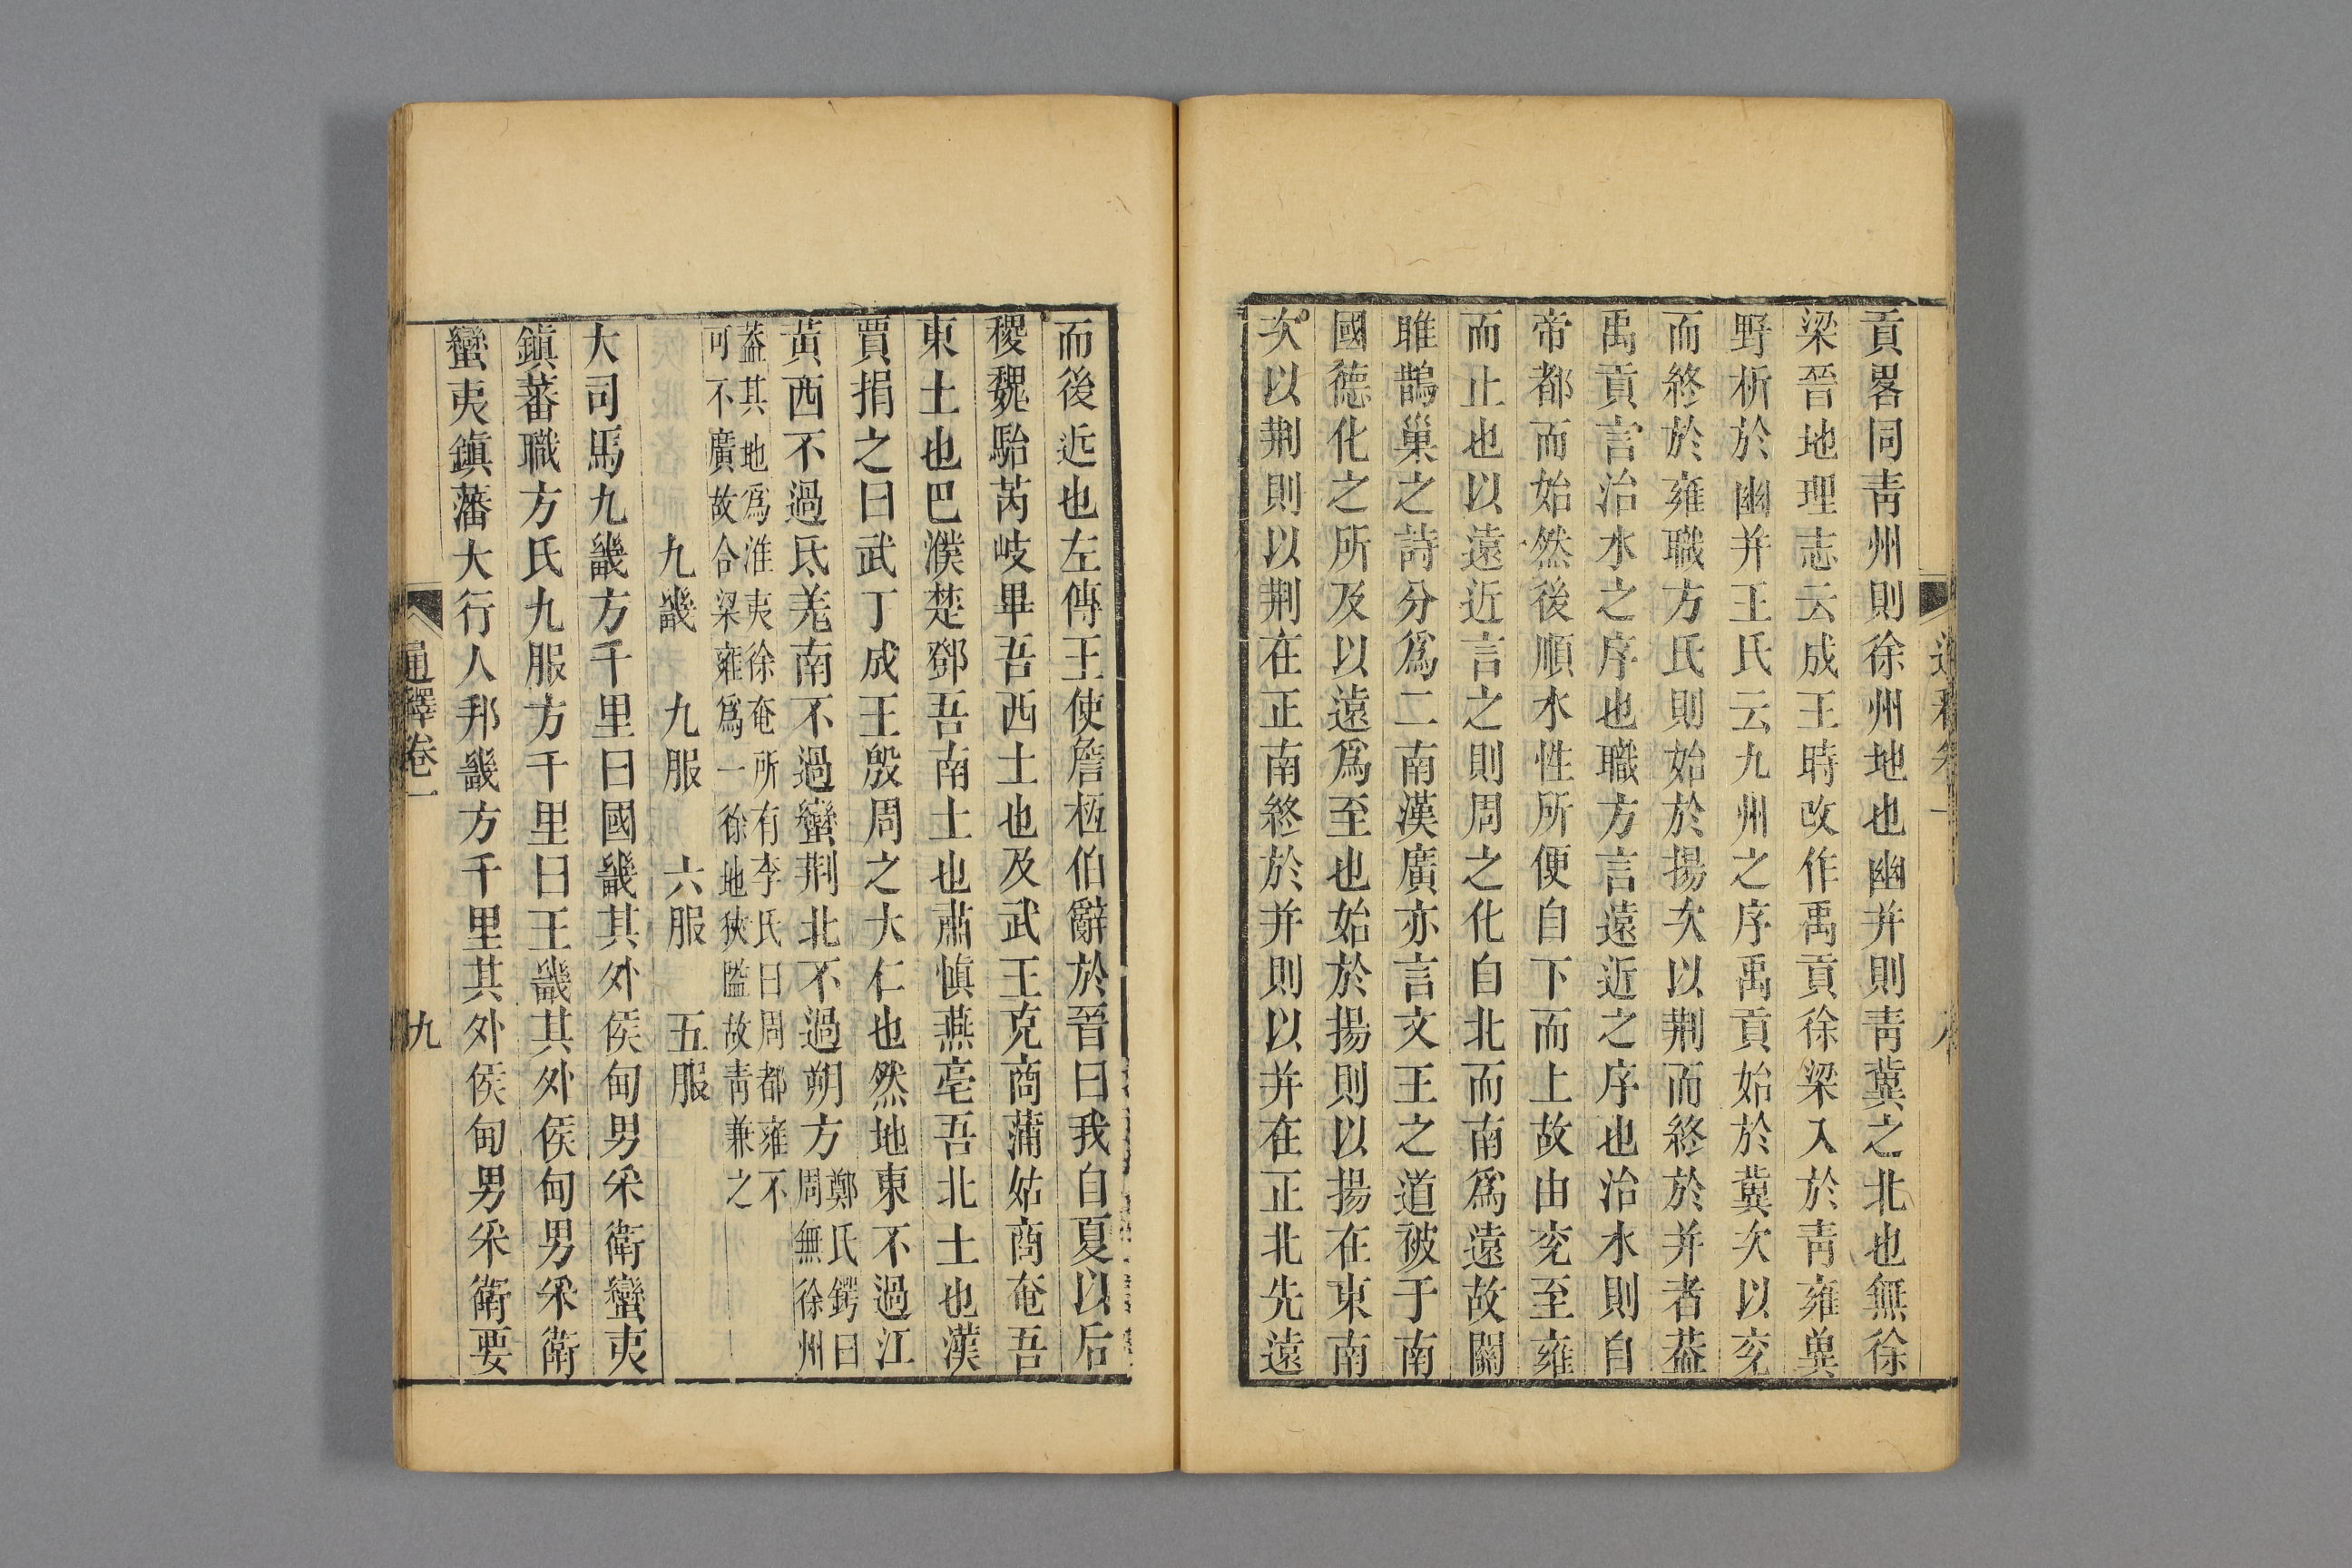 貢畧同靑州則徐州地也幽并則靑冀之北也無徐
梁晉地理志云成王時改作禹貢徐梁入於靑雍兾
野析於幽并王氏云九州之序禹貢始於冀次以兖
而終於雍職方氏則始於揚次以荆而終於并者葢
禹貢言治水之序也職方言遠近之序也治水則自
帝都而始然後順水性所便自下而上故由兖至雍
而止也以遠近言之則周之化自北而南爲遠故關
雎鵲巢之詩分爲二南漢廣亦言文王之道被于南
國德化之所及以遠爲至也始於揚則以揚在東南
次以荆則以荆在正南終於并則以并在正北先遠
而後近也左傳王使詹桓伯辭於晉曰我自夏以后
稷魏駘芮岐畢吾西土也及武王克商蒲姑商奄吾
東土也巴濮楚鄧吾南土也肅愼燕亳吾北土也漢
賈捐之曰武丁成王殷周之大仁也然地東不過江
黃西不過氐羌南不過蠻荆北不過朔方
鄭氏鍔曰
周無徐州
葢其地爲淮夷徐奄所有李氏曰周都雍不
可不廣故合梁雍爲一徐地狹隘故靑兼之
九畿 九服 六服 五服
大司馬九畿方千里曰國畿其外侯甸男采衛蠻夷
鎭蕃職方氏九服方千里曰王畿其外侯甸男采衛
蠻夷鎭藩大行人邦畿方千里其外侯甸男采衛要
通釋卷一 九